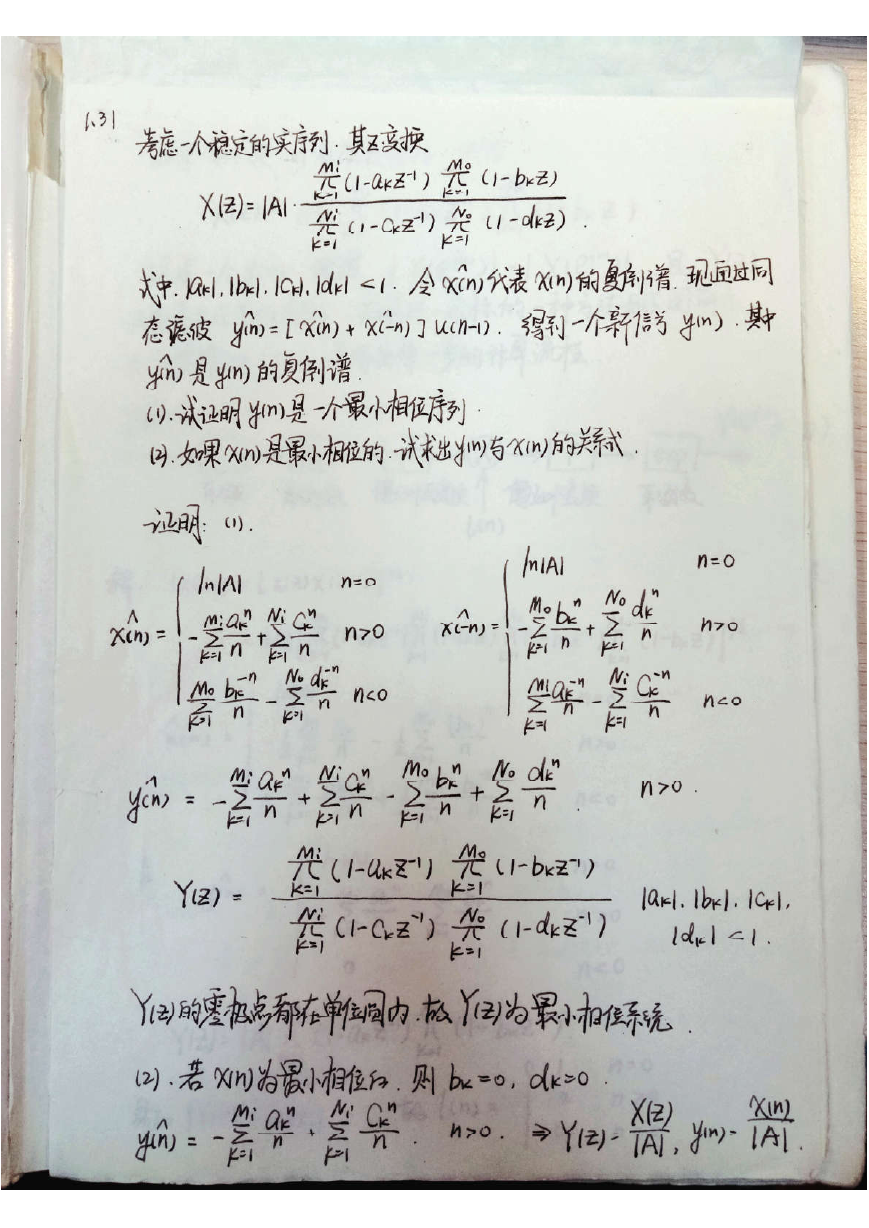 1.31
考虑一个稳定的实序列. 其Z变换
X(z)=|A|· \frac{\prod_{k=1}^{Mi}(1-a_k z^{-1}) \prod_{k=1}^{Mo}(1-b_k z)}{\prod_{k=1}^{Ni}(1-c_k z^{-1}) \prod_{k=1}^{No}(1-d_k z)}.
式中. |a_k|. |b_k|. |c_k|. |d_k| <1. 令 \hat{x(n)} 代表 x(n) 的复倒谱. 现通过同
态滤波 \hat{y(n)} = [\hat{x(n)} + \hat{x(-n)}] u(n-1). 得到一个新信号 y(n). 其中
\hat{y(n)} 是 y(n) 的复倒谱.
(1). 试证明 y(n) 是一个最小相位序列.
(2). 如果 x(n) 是最小相位的. 试求出 y(n) 与 x(n) 的关系式.
证明: (1).
\hat{x(n)} = \begin{cases} ln|A| & n=0 \\ -\sum_{k=1}^{Mi}\frac{a_k^n}{n} + \sum_{k=1}^{Ni}\frac{c_k^n}{n} & n>0 \\ \sum_{k=1}^{Mo}\frac{b_k^{-n}}{n} - \sum_{k=1}^{No}\frac{d_k^{-n}}{n} & n<0 \end{cases} \hat{x(-n)} = \begin{cases} ln|A| & n=0 \\ -\sum_{k=1}^{Mo}\frac{b_k^n}{n} + \sum_{k=1}^{No}\frac{d_k^n}{n} & n>0 \\ \sum_{k=1}^{Mi}\frac{a_k^{-n}}{n} - \sum_{k=1}^{Ni}\frac{c_k^{-n}}{n} & n<0 \end{cases}
\hat{y(n)} = -\sum_{k=1}^{Mi}\frac{a_k^n}{n} + \sum_{k=1}^{Ni}\frac{c_k^n}{n} - \sum_{k=1}^{Mo}\frac{b_k^n}{n} + \sum_{k=1}^{No}\frac{d_k^n}{n}. n>0.
Y(z) = \frac{\prod_{k=1}^{Mi}(1-a_k z^{-1}) \prod_{k=1}^{Mo}(1-b_k z^{-1})}{\prod_{k=1}^{Ni}(1-c_k z^{-1}) \prod_{k=1}^{No}(1-d_k z^{-1})} |a_k|. |b_k|. |c_k|. |d_k| <1.
Y(z)的零极点都在单位圆内. 故 Y(z)为最小相位系统.
(2). 若 x(n)为最小相位的. 则 b_k=0, d_k=0.
\hat{y(n)} = -\sum_{k=1}^{Mi}\frac{a_k^n}{n} + \sum_{k=1}^{Ni}\frac{c_k^n}{n}. n>0. ⇒ Y(z) = \frac{X(z)}{|A|}, y(n) = \frac{x(n)}{|A|}.